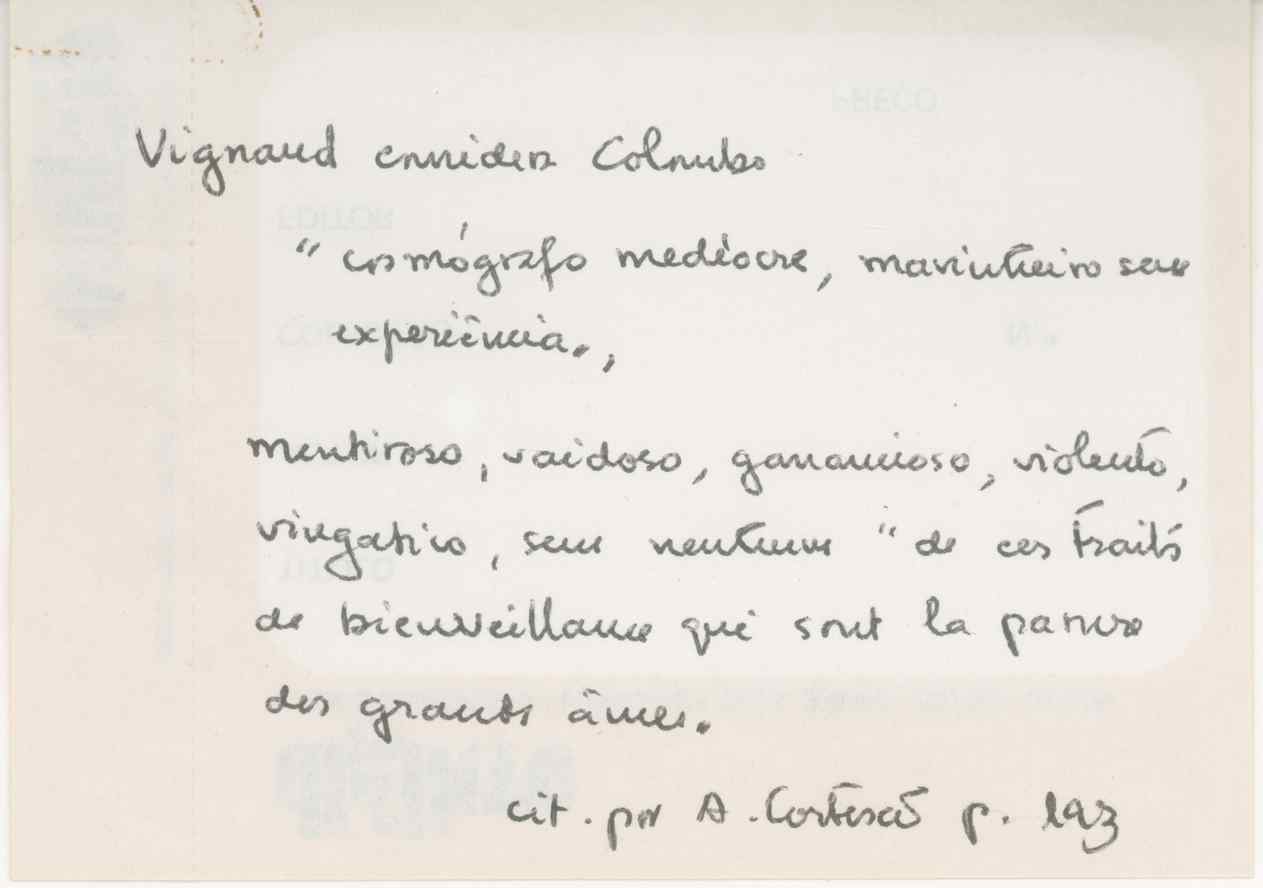 Vignaud considera Colombo
"cosmógrafo medíocre, marinheiro sem
experiência.,
mentiroso, vaidoso, ganancioso, violento,
vingativo, sem nenhum "de ces traits
de bienveillance qui sont la parure
des grands âmes.
cit. por A. Cortesão p. 193
PREÇO
EDITOR